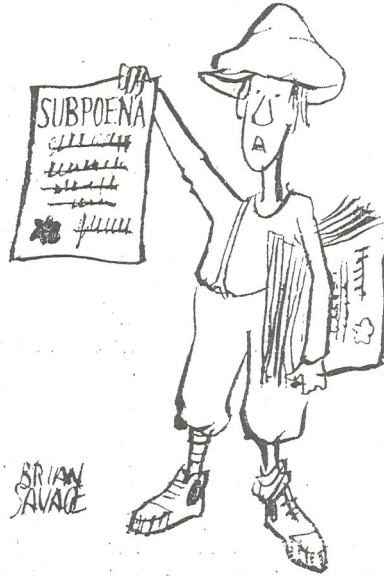 SUBPOENA
BRIAN
SAVAGE